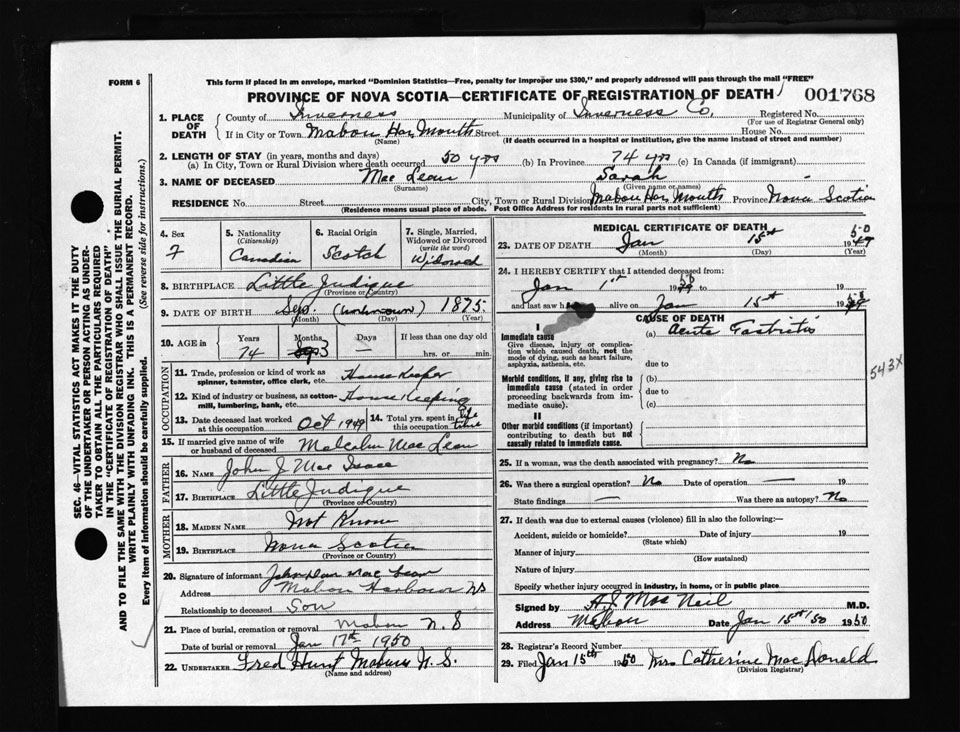 FORM 6
This form if placed in an envelope, marked "Dominion Statistics—Free, penalty for improper use $300," and properly addressed will pass through the mail "FREE"
PROVINCE OF NOVA SCOTIA—CERTIFICATE OF REGISTRATION OF DEATH 001768
1. PLACE OF DEATH
County of Inverness Municipality of Inverness Co. Registered No.
(For use of Registrar General only)
If in City or Town Mabou Har Mouth Street House No.
(Name) (If death occurred in a hospital or institution, give the name instead of street and number)
2. LENGTH OF STAY (in years, months and days)
(a) In City, Town or Rural Division where death occurred 50 yrs (b) In Province 74 yrs (c) In Canada (if immigrant)
3. NAME OF DECEASED Mac Lean Sarah
(Surname) (Given name or names)
RESIDENCE No. Street City, Town or Rural Division Mabou Har Mouth Province Nova Scotia
(Residence means usual place of abode. Post Office Address for residents in rural parts not sufficient)
4. Sex
F
5. Nationality
(Citizenship)
Canadian
6. Racial Origin
Scotch
7. Single, Married, Widowed or Divorced
(write the word)
Widowed
8. BIRTHPLACE Little Judique
(Province or Country)
9. DATE OF BIRTH Sep. (unknown) 1875
(Month) (Day) (Year)
10. AGE in Years Months Days If less than one day old
74 3 — hrs. or min.
OCCUPATION
11. Trade, profession or kind of work as spinner, teamster, office clerk, etc. House Keeper
12. Kind of industry or business, as cotton-mill, lumbering, bank, etc. House Keeping
13. Date deceased last worked at this occupation Oct 1949
14. Total yrs. spent in this occupation Life time
15. If married give name of wife or husband of deceased Malcolm Mac Lean
FATHER
16. NAME John J Mac Isaac
17. BIRTHPLACE Little Judique
(Province or Country)
MOTHER
18. MAIDEN NAME Not Know
19. BIRTHPLACE Nova Scotia
(Province or Country)
20. Signature of informant John Dan Mac Lean
Address Mabou Harbour NS
Relationship to deceased Son
21. Place of burial, cremation or removal Mabou N. S
Date of burial or removal Jan 17th 1950
22. UNDERTAKER Fred Hunt Mabou N. S.
(Name and address)
MEDICAL CERTIFICATE OF DEATH
23. DATE OF DEATH Jan 15th 1950
(Month) (Day) (Year)
24. I HEREBY CERTIFY that I attended deceased from:
Jan 1st 19 50 to 19
and last saw h alive on Jan 15th 19
CAUSE OF DEATH
I
Immediate cause (a) Acute Gastritis
Give disease, injury or complication which caused death, not the mode of dying, such as heart failure, asphyxia, asthenia, etc.
due to
Morbid conditions, if any, giving rise to immediate cause (stated in order proceeding backwards from immediate cause).
(b)
due to
(c)
II
Other morbid conditions (if important) contributing to death but not causally related to immediate cause.
543X
25. If a woman, was the death associated with pregnancy? No
26. Was there a surgical operation? No Date of operation — 19
State findings — Was there an autopsy? No
27. If death was due to external causes (violence) fill in also the following:—
Accident, suicide or homicide? Date of injury 19
(State which)
Manner of injury
(How sustained)
Nature of injury
Specify whether injury occurred in industry, in home, or in public place
Signed by A. J. Mac Neil M.D.
Address Mabou Date Jan 15th/50 1950
28. Registrar's Record Number
29. Filed Jan 15th 1950 Mrs Catherine Mac Donald
(Division Registrar)
SEC. 46—VITAL STATISTICS ACT MAKES IT THE DUTY
OF THE UNDERTAKER OR PERSON ACTING AS UNDER-
TAKER TO OBTAIN ALL THE PARTICULARS REQUIRED
IN THE "CERTIFICATE OF REGISTRATION OF DEATH"
AND TO FILE THE SAME WITH THE DIVISION REGISTRAR WHO SHALL ISSUE THE BURIAL PERMIT.
WRITE PLAINLY WITH UNFADING INK. THIS IS A PERMANENT RECORD.
Every item of information should be carefully supplied. (See reverse side for instructions.)